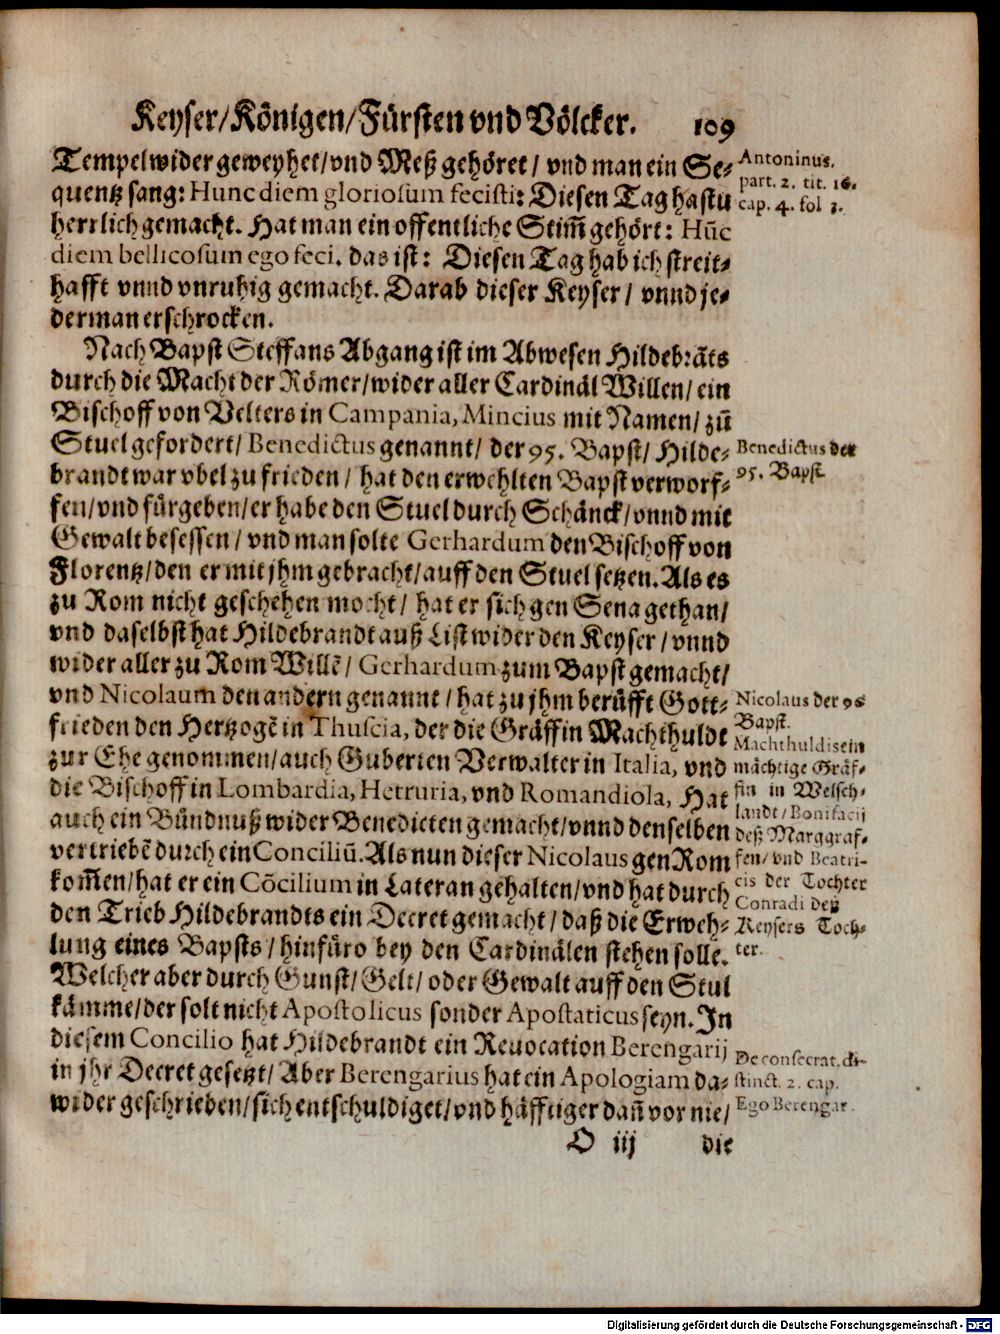 Keyser/Königen/Fürsten vnd Völcker. 109
Tempel wider geweyhet/vnd Meß gehöret/ vnd man ein Se-
quentz sang: Hunc diem gloriosum fecisti: Diesen Tag hastu
herrlich gemacht. Hat man ein offentliche Stim̃ gehört: Hũc
diem bellicosum ego feci. das ist: Diesen Tag hab ich streit-
hafft vnnd vnruhig gemacht. Darab dieser Keyser/ vnnd je-
derman erschrocken.
Nach Bapst Steffans Abgang ist im Abwesen Hildebrãts
durch die Macht der Römer/wider aller Cardinäl Willen/ ein
Bischoff von Velters in Campania, Mincius mit Namen/ zũ
Stuel gefordert/ Benedictus genannt/ der 95. Bapst/ Hilde-
brandt war vbel zu frieden/ hat den erwehlten Bapst verworf-
fen/vnd fürgeben/er habe den Stuel durch Schänck/vnnd mit
Gewalt besessen/ vnd man solte Gerhardum den Bischoff von
Florentz/den er mit jhm gebracht/auff den Stuel setzen. Als es
zu Rom nicht geschehen mocht/ hat er sich gen Sena gethan/
vnd daselbst hat Hildebrandt auß List wider den Keyser/vnnd
wider aller zu Rom Willẽ/ Gerhardum zum Bapst gemacht/
vnd Nicolaum den andern genannt/ hat zu jhm berüfft Gott-
frieden den Hertzogẽ in Thuscia, der die Gräffin Machthuldt
zur Ehe genommen/auch Guberten Verwalter in Italia, vnd
die Bischoff in Lombardia, Hetruria, vnd Romandiola, Hat
auch ein Bündnuß wider Benedicten gemacht/vnnd denselben
vertriebẽ durch ein Conciliũ. Als nun dieser Nicolaus gen Rom
kom̃en/hat er ein Cõcilium in Lateran gehalten/vnd hat durch
den Trieb Hildebrandts ein Decret gemacht/ daß die Erweh-
lung eines Bapsts/ hinfüro bey den Cardinälen stehen solle.
Welcher aber durch Gunst/Gelt/ oder Gewalt auff den Stul
kämme/der solt nicht Apostolicus sonder Apostaticus seyn. In
diesem Concilio hat Hildebrandt ein Reuocation Berengarij
in jhr Decret gesetzt/ Aber Berengarius hat ein Apologiam da-
wider geschrieben/sich entschuldiget/vnd häfftiger dañ vor nie/
O iij die
Antoninus.
part. 2. tit. 16.
cap. 4. fol 3.
Benedictus der
95. Bapst
Nicolaus der 96
Bapst.
Machthuldis ein
mächtige Gräf-
fin in Welsch-
landt/Bonifacij
deß Marggraf-
fen/vnd Beatri-
cis der Tochter
Conradi deß
Keysers Toch-
ter.
De consecrat. di-
stinct. 2. cap.
Ego Berengar.
Digitalisierung gefördert durch die Deutsche Forschungsgemeinschaft - DFG